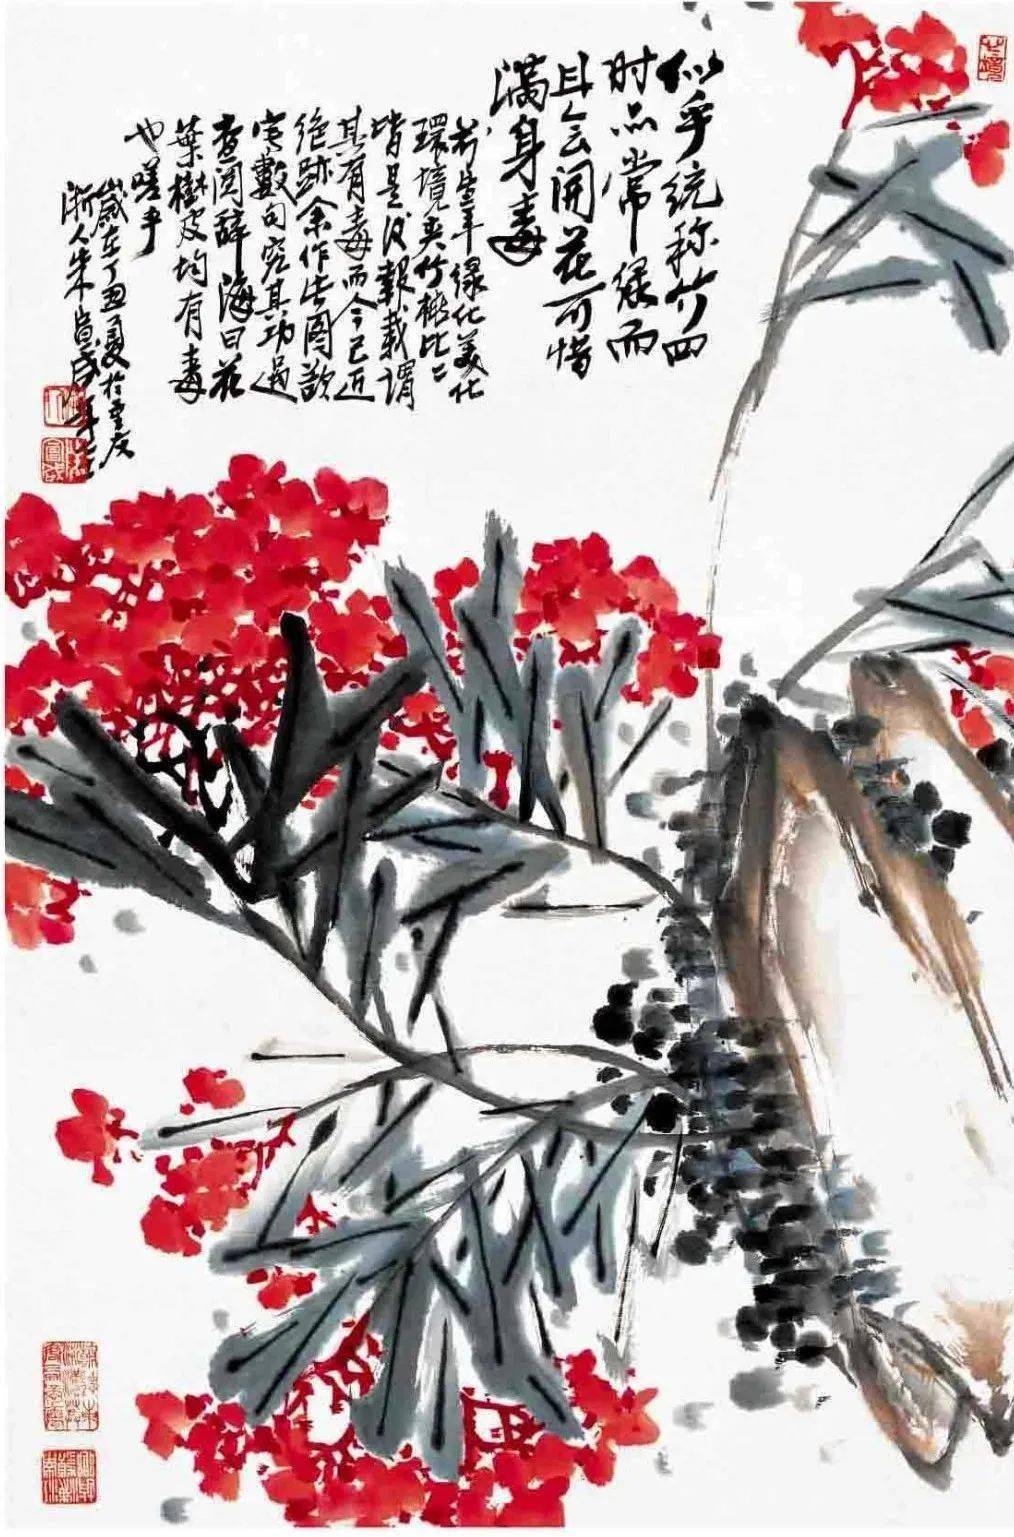 似乎统称竹四
时品常绿而
且会开花可惜
满身毒
若些年绿化美化
環境夹竹桃比比
皆是後報載谓
其有毒而今已近
绝跡余作此图欲
宝數句究其功過
查阅辞海曰花
葉樹皮均有毒
也嗟乎
歲在丁丑夏於重庆
浙人朱宣咸年